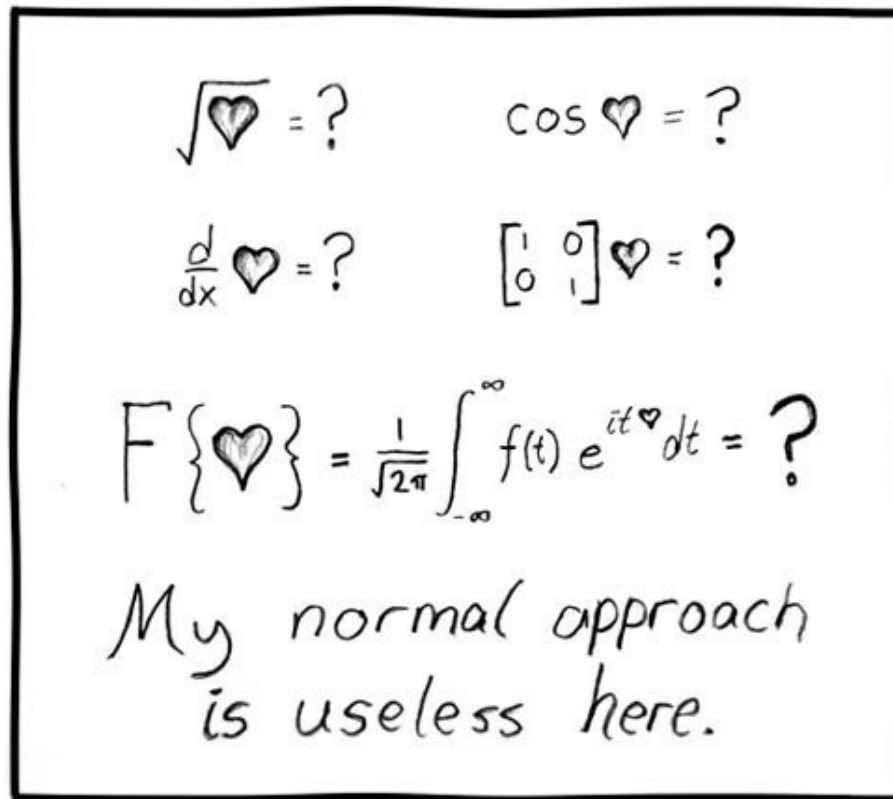 √♥ = ?
cos ♥ = ?
d/dx ♥ = ?
[1 0; 0 1] ♥ = ?
F{♥} = 1/√2π ∫_{-∞}^{∞} f(t) e^{it♥} dt = ?
My normal approach
is useless here.